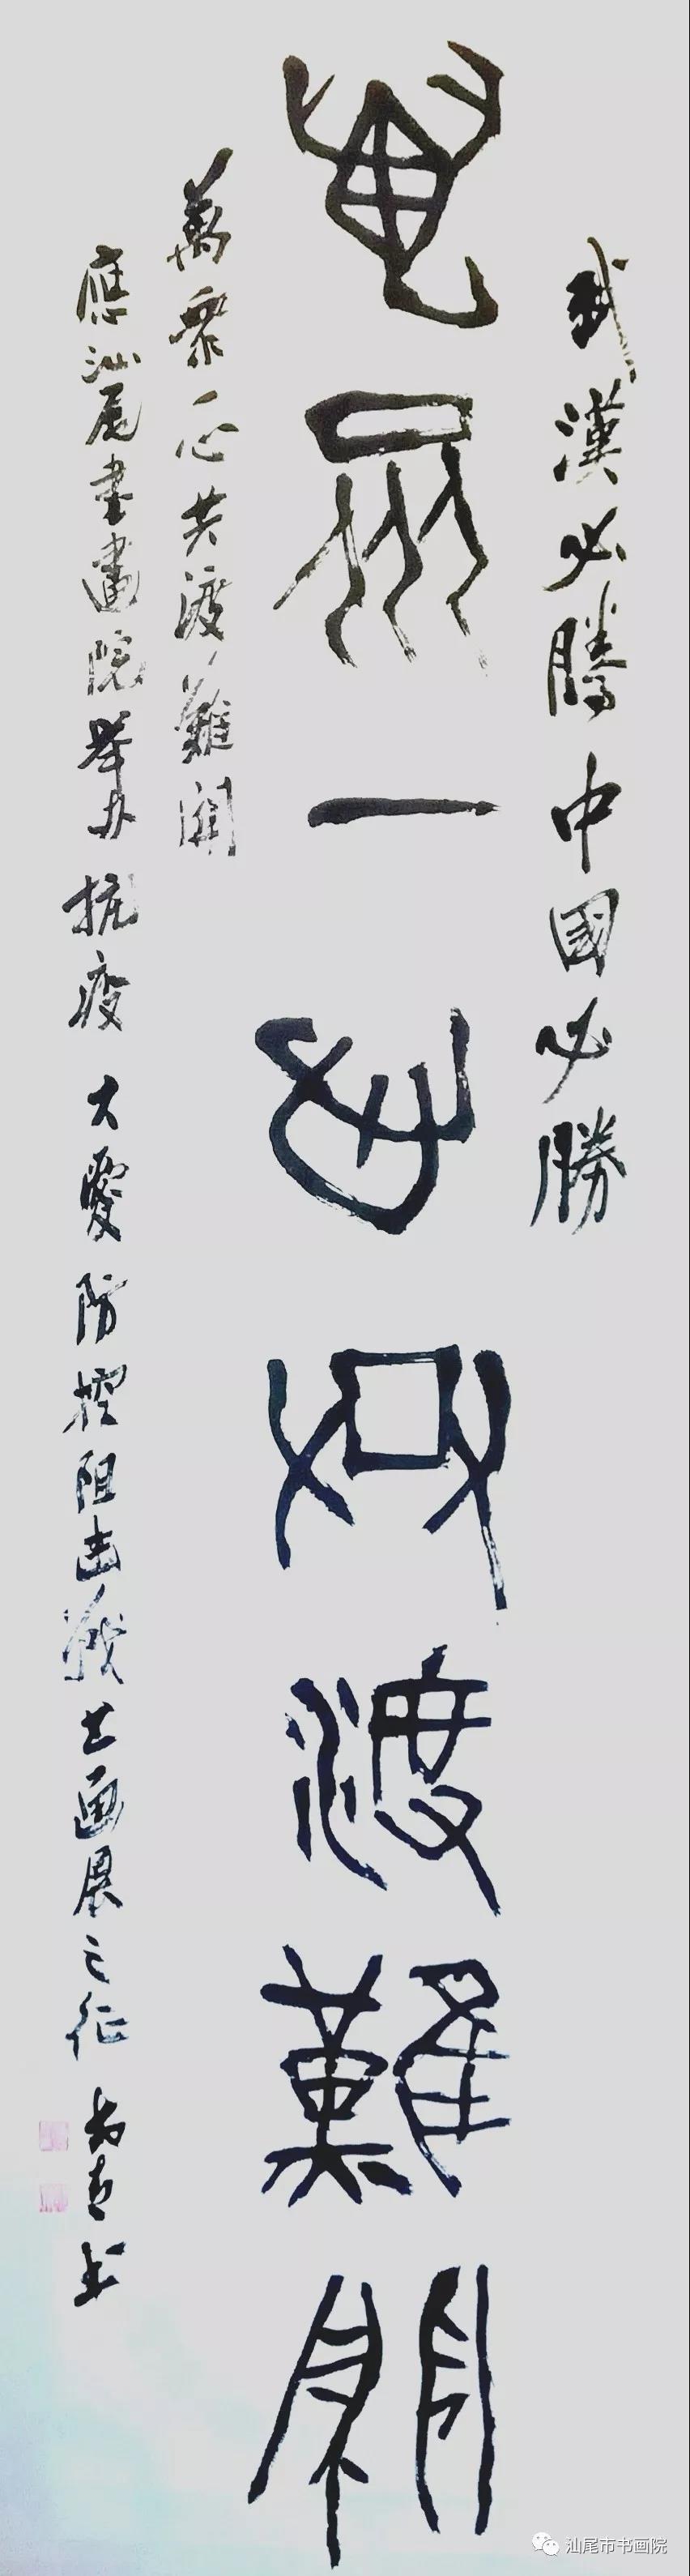 武漢必勝中國必勝
萬眾一心共渡難關
萬眾一心共渡難關
應汕尾書畫院举办抗疫大愛防控阻击戰书画展之征 书
汕尾市书画院